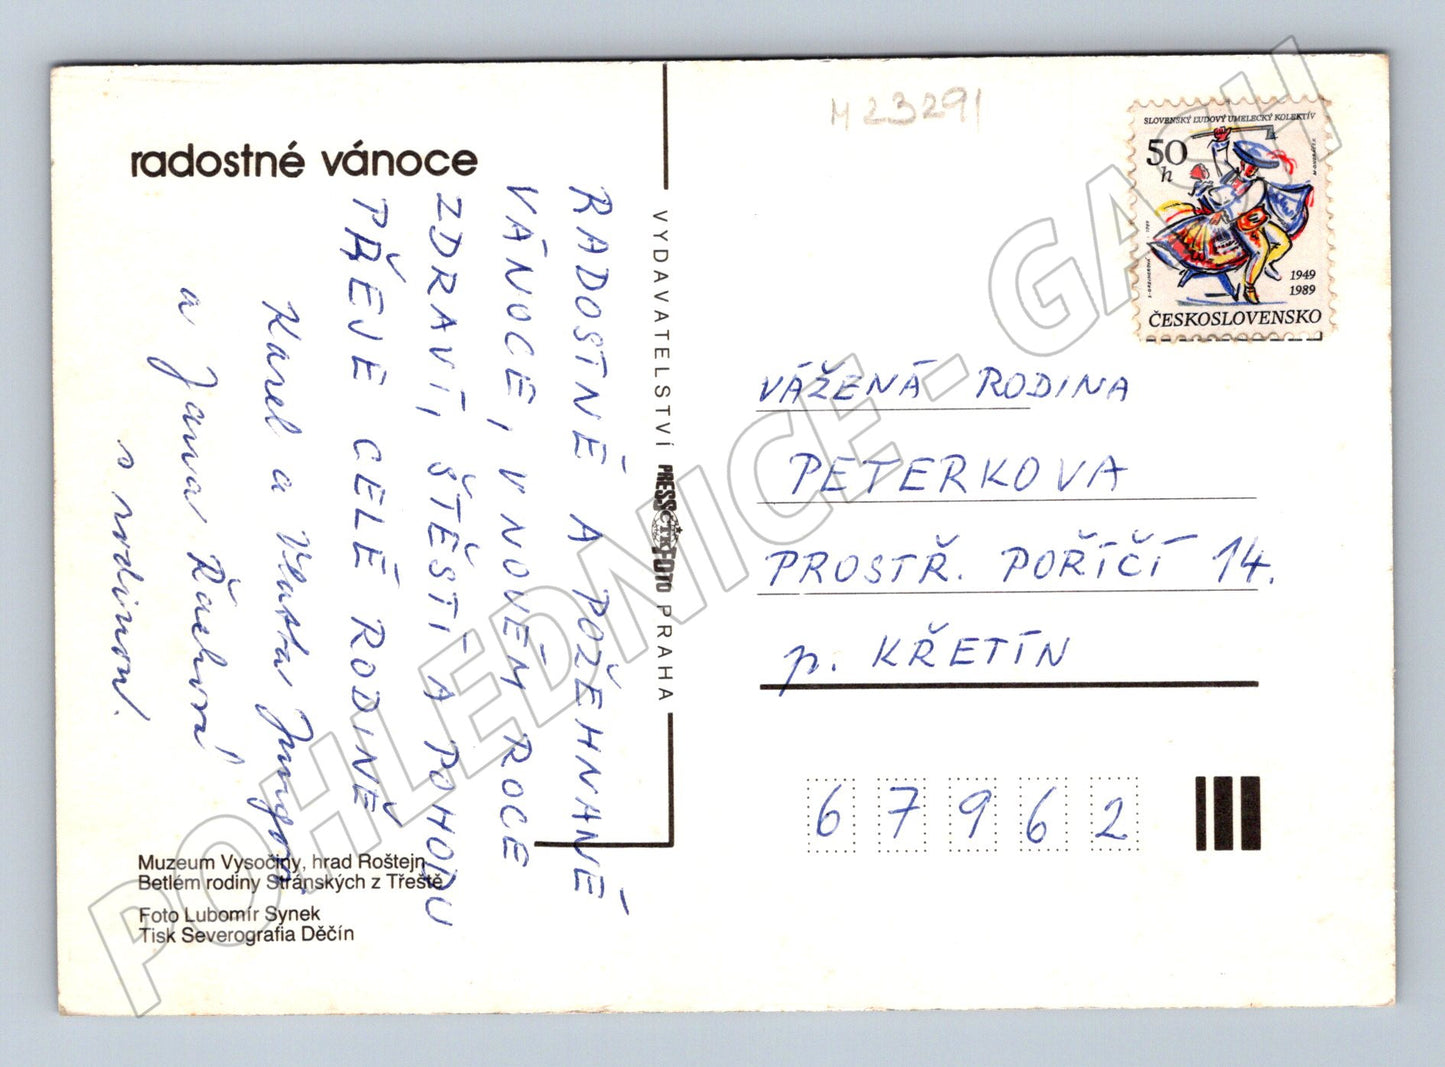 radostné vánoce
RADOSTNÉ A POŽEHNANÉ
VÁNOCE, V NOVÉM ROCE
ZDRAVÍ, ŠTĚSTÍ A POHODU
PŘEJE CELÉ RODINĚ
Karel a Vlasta
a Jana
s rodinou.
Muzeum Vysočiny, hrad Roštejn
Betlém rodiny Stránských z Třeště
Foto Lubomír Synek
Tisk Severografia Děčín
VYDAVATELSTVÍ PRESSFOTO PRAHA
ČTK
M 23291
SLOVENSKÝ ĽUDOVÝ UMELECKÝ KOLEKTÍV
50
h
1949
1989
ČESKOSLOVENSKO
VÁŽENÁ RODINA
PETERKOVA
PROSTŘ. POŘÍČÍ 14.
p. KŘETÍN
67962
POHLEDNICE - GASH